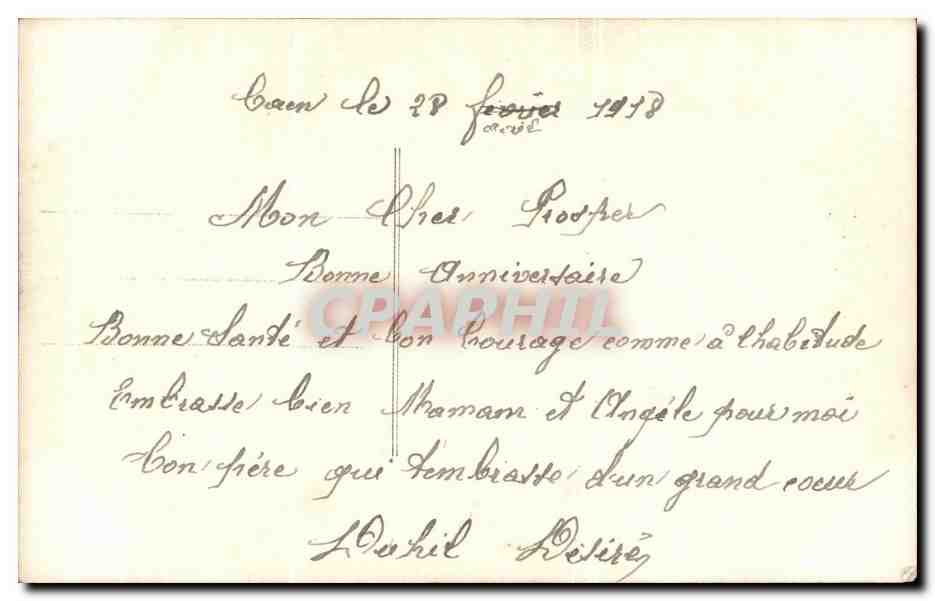 Caen le 28 fevrier 1918
avril
Mon Cher Prosper
Bonne Anniversaire
CPAPHIL
Bonne Santé et bon Courage comme à l'habitude
Embrasse bien Maman et Angéle pour moi
Ton frére qui t'embrasse d'un grand coeur
Duhil Désiré